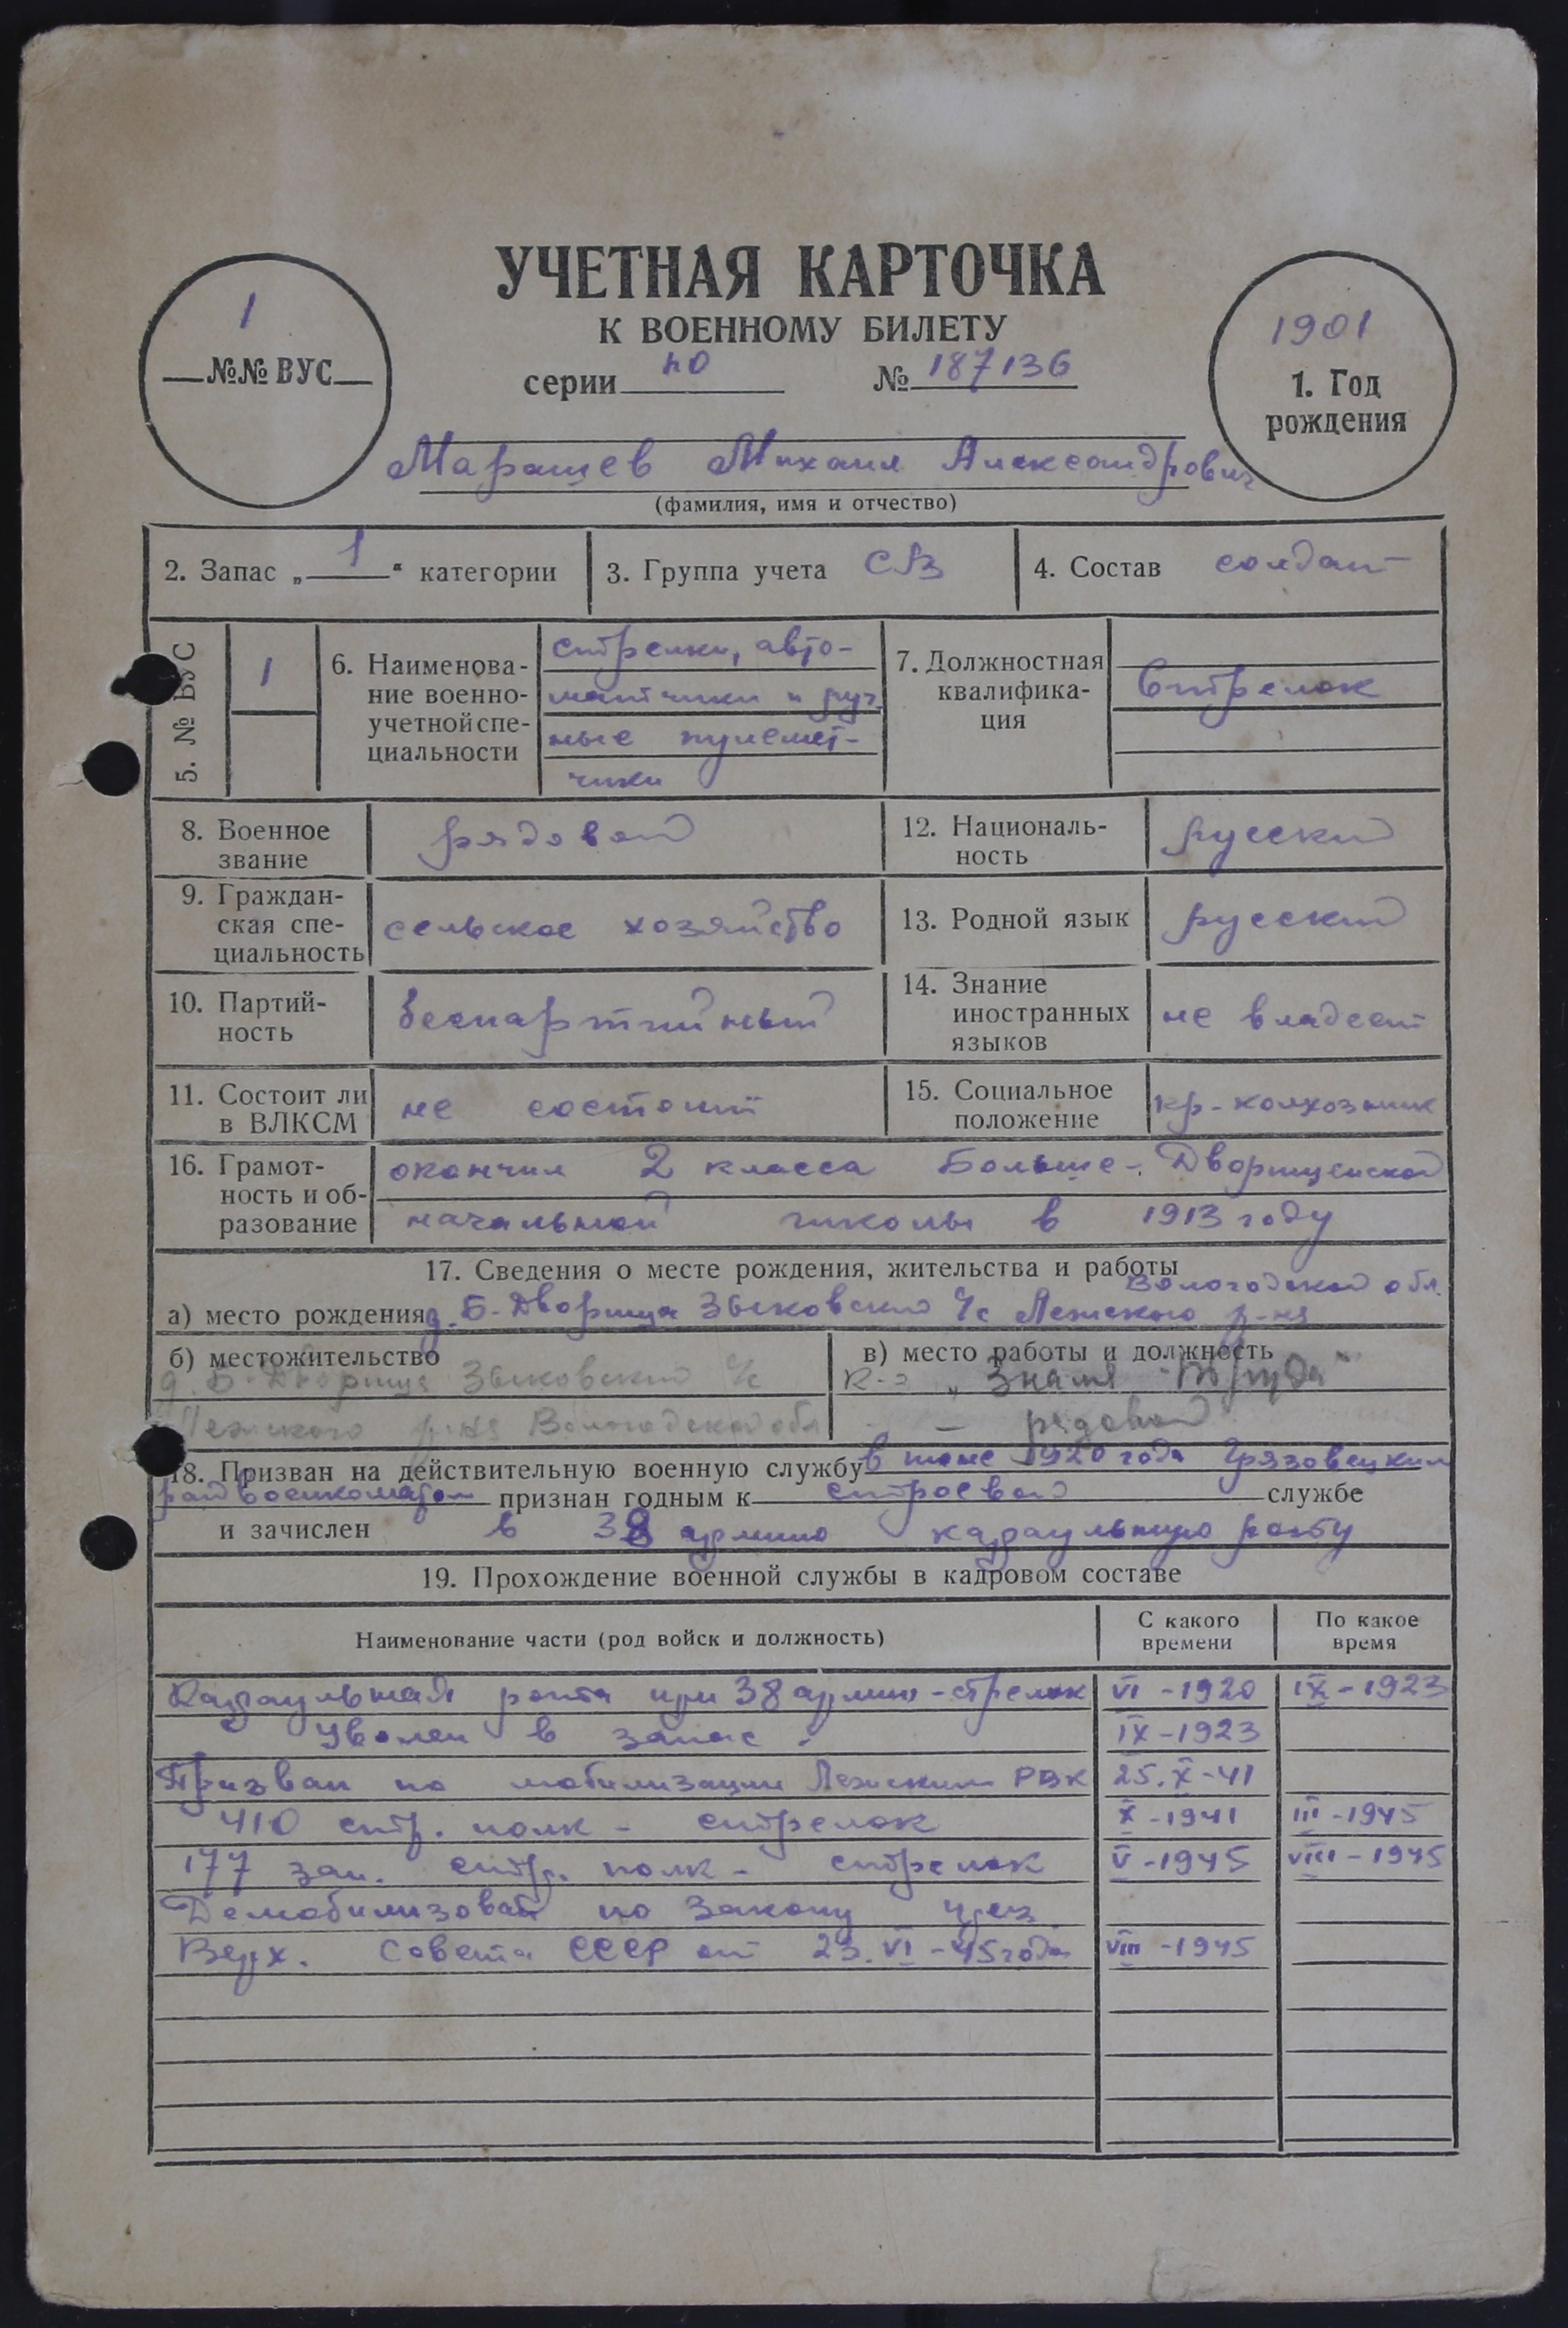 УЧЕТНАЯ КАРТОЧКА
К ВОЕННОМУ БИЛЕТУ
серии по № 187136
1
№№ ВУС
1901
1. Год
рождения
Маращев Михаил Александрович
(фамилия, имя и отчество)
2. Запас „1“ категории
3. Группа учета СА
4. Состав солдат
5. № ВУС
1
6. Наименова-
ние военно-
учетной спе-
циальности
стрелки, авто-
матчики и руч
ные пулемет-
чики
7. Должностная
квалифика-
ция
Стрелок
8. Военное
звание
рядовой
12. Националь-
ность
русский
9. Граждан-
ская спе-
циальность
сельское хозяйство
13. Родной язык
русский
10. Партий-
ность
беспартийный
14. Знание
иностранных
языков
не владеет
11. Состоит ли
в ВЛКСМ
не состоит
15. Социальное
положение
кр-колхозник
16. Грамот-
ность и об-
разование
окончил 2 класса Больше-Дворищенской
начальной школы в 1913 году
17. Сведения о месте рождения, жительства и работы
Вологодской обл.
а) место рождения д. Б-Дворища Зыковский с/с Лежского р-на
б) местожительство
д. Б-Дворища Зыковский с/с
Лежского р-на Вологодской обл
в) место работы и должность
к-з „Знамя Труда“
- рядовой
18. Призван на действительную военную службу в июне 1920 года Грязовецким
райвоенкоматом признан годным к строевой службе
и зачислен в 38 армию караульную роту
19. Прохождение военной службы в кадровом составе
Наименование части (род войск и должность)
С какого
времени
По какое
время
Караульная рота при 38 армии - стрелок VI - 1920 IX - 1923
Уволен в запас. IX - 1923
Призван по мобилизации Лежским РВК 25. X - 41
410 стр. полк - стрелок X - 1941 III - 1945
177 зап. стр. полк - стрелок V - 1945 VIII - 1945
Демобилизован по Закону през.
Верх. Совета СССР от 23. VI - 45 года VIII - 1945